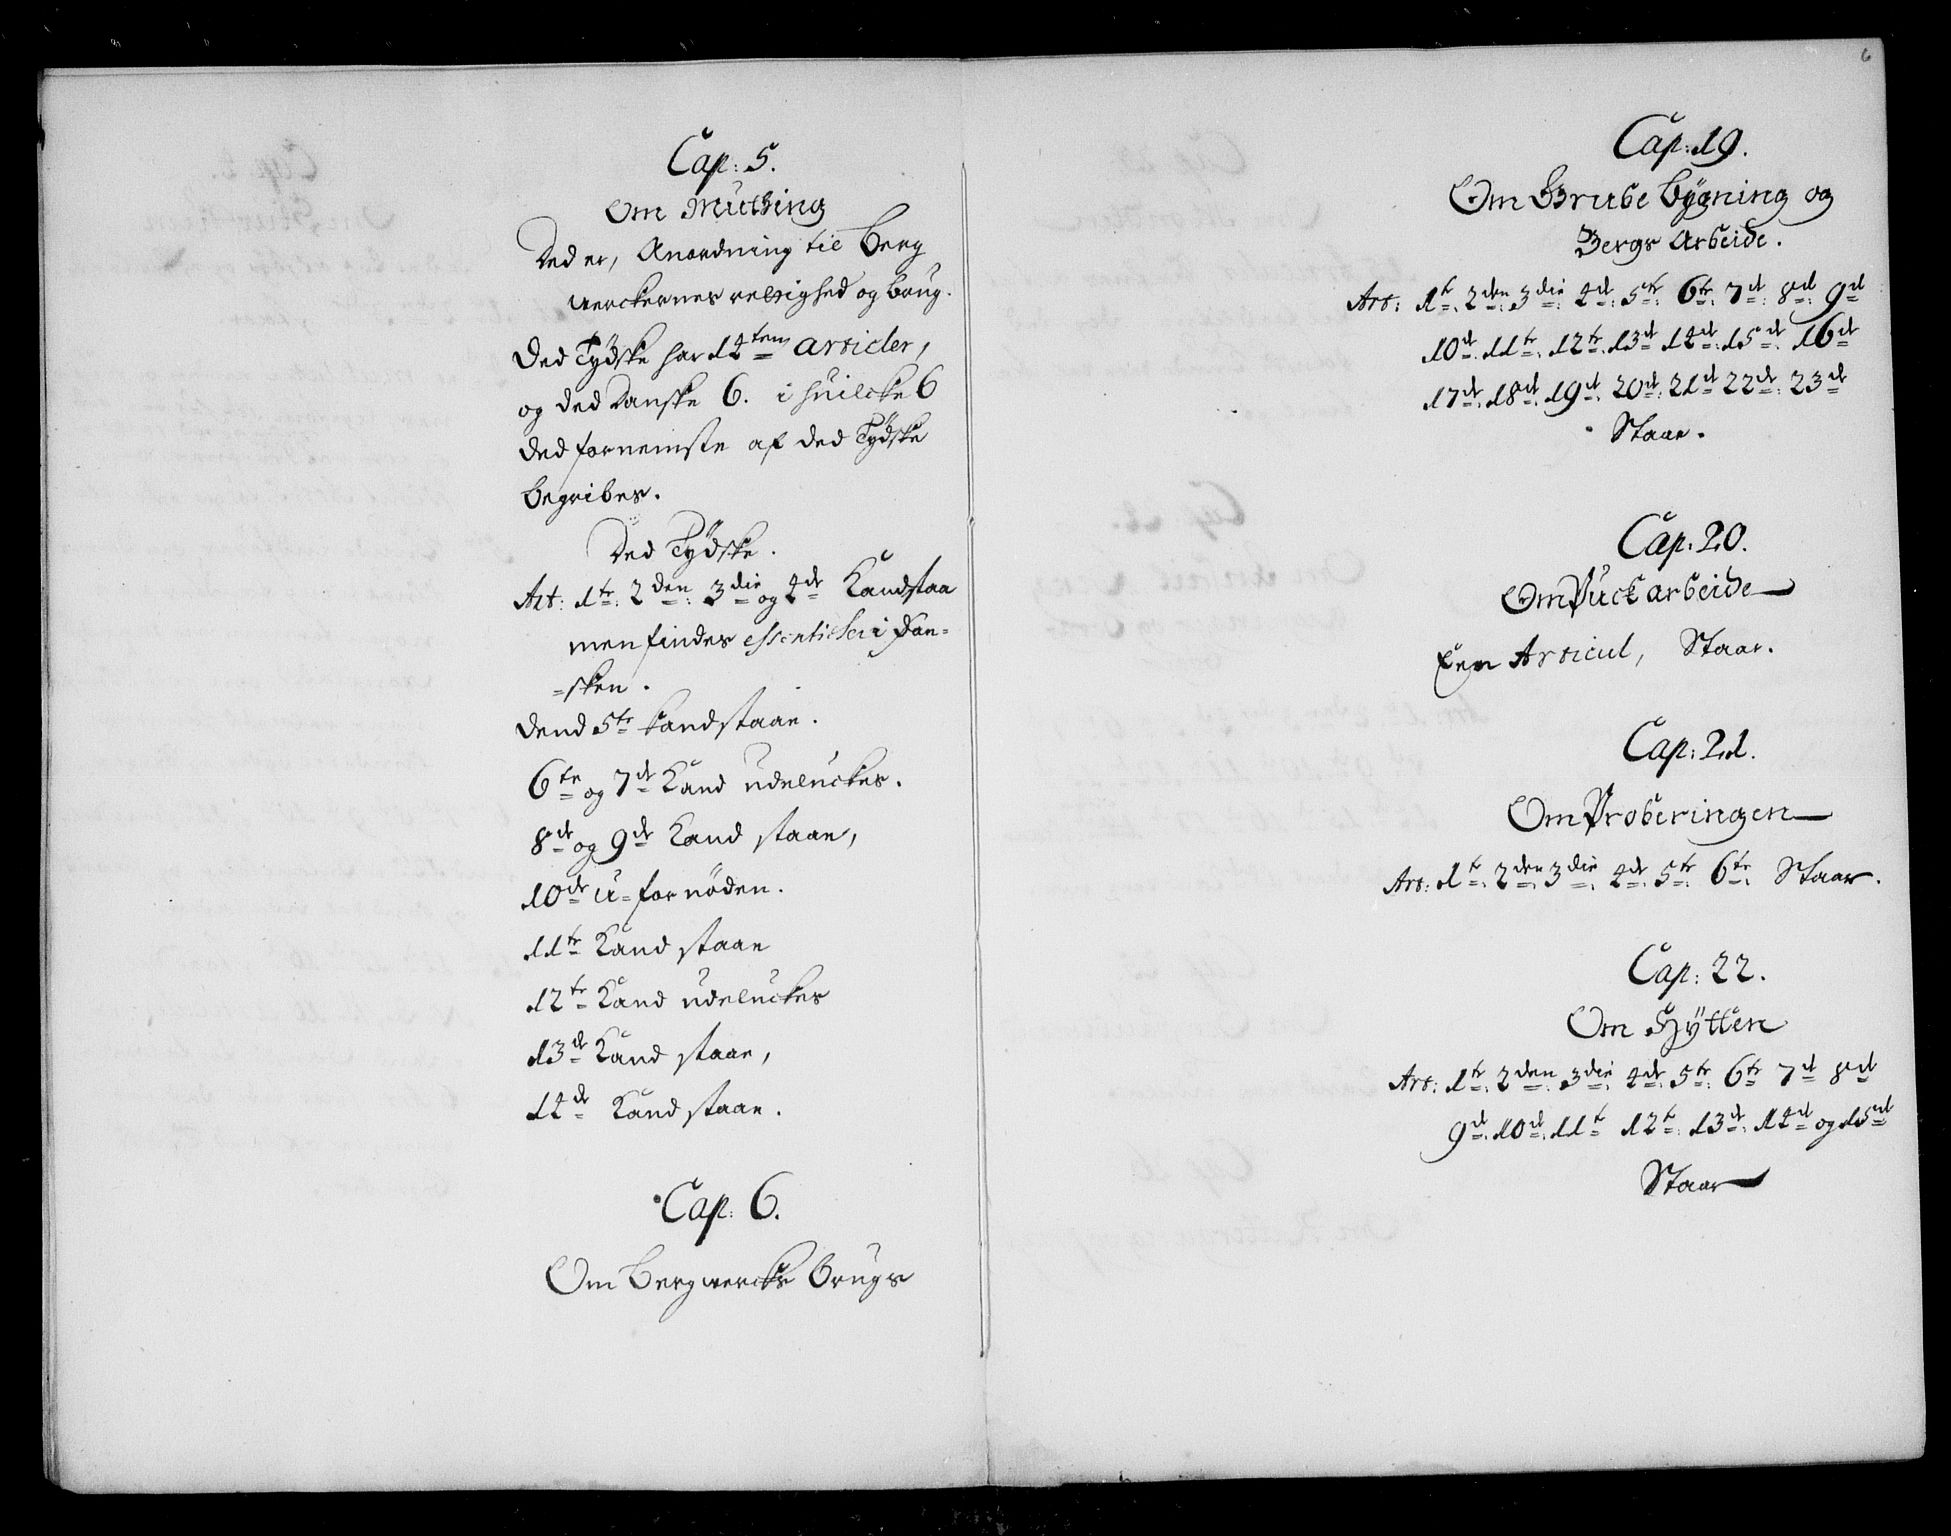 Cap: 5.
Om Muthing
Ded er, Anordning til Berg
werckernes rettighed og brug.
Ded Tydske har 14ten articler,
og ded Danske 6. i huilcke 6
ded fornemste af ded Tydske
begribes.
Ded Tydske.
Art: 1te: 2den: 3die og 4de Kand staa
men findes essentielen i Dan=
=sken.
Dend 5te kand staae.
6te og 7de Kand udeluckes.
8de og 9de Kand staae,
10de U=fornöden.
11te Kand staae
12te Kand udeluckes
13de Kand staae,
14de Kand staae.
Cap: 6.
Om Bergwercks brugs
6
Cap: 19.
Om Grube bÿgning og
Bergs Arbeide.
Art: 1te: 2den: 3die: 4de: 5te: 6te: 7de: 8de: 9de
10de: 11te: 12te: 13de 14de: 15de: 16de
17de: 18de: 19de: 20de: 21de 22de: 23de
Staar.
Cap: 20.
Om Puck arbeide
Een Articul, Staar.
Cap: 21.
Om Proberingen
Art: 1te: 2den: 3die: 4de: 5te: 6te: Staar.
Cap: 22.
Om Hÿtten
Art: 1te: 2den: 3die: 4de: 5te: 6te 7de 8de
9de: 10de: 11te 12te: 13de: 14de og 15de
Staar